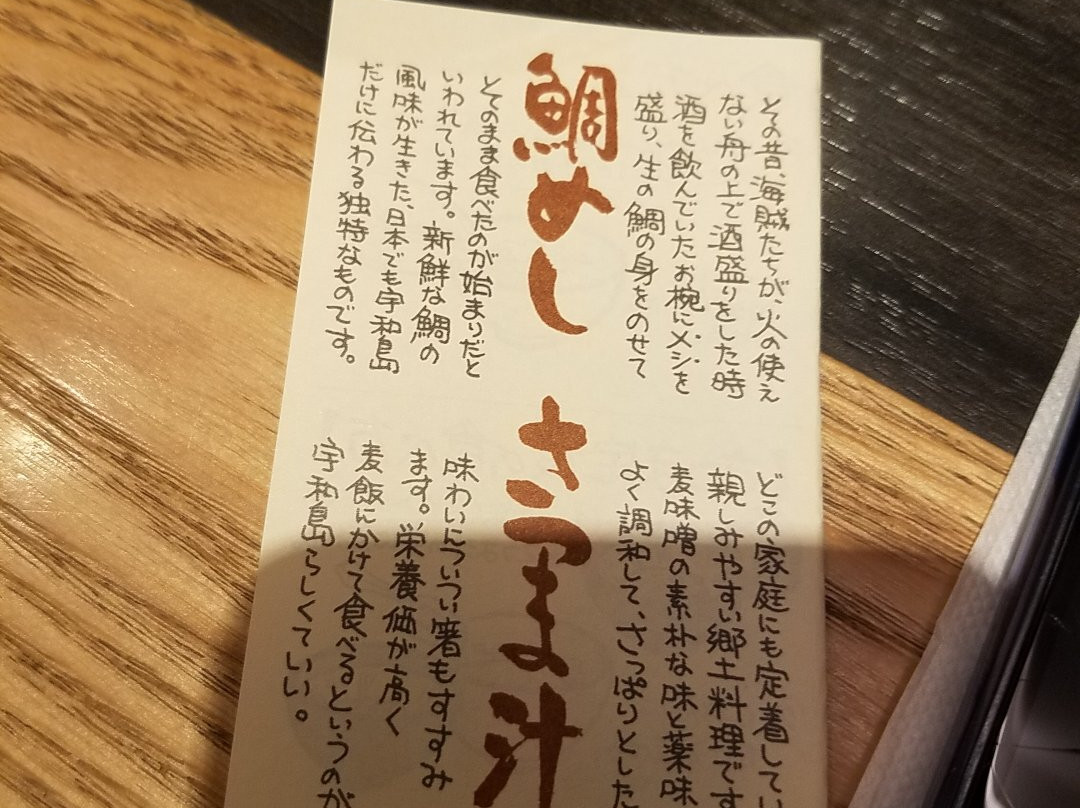 その昔、海賊たちが、火の使え
ない舟の上で酒盛りをした時
酒を飲んでいたお椀にメシを
盛り、生の鯛の身をのせて
鯛めし
とてのまま食べたのが始まりだと
いわれています。新鮮な鯛の
風味が生きた、日本でも宇和島
だけに伝わる独特なものです。
どこの家庭にも定着してい
親しみやすい郷土料理です
麦味噌の素朴な味と薬味
よく調和して、さっぱりとした
さつま汁
味わいについつい箸もすすみ
ます。栄養価が高く
麦飯にかけて食べるというのが
宇和島らしくていい。